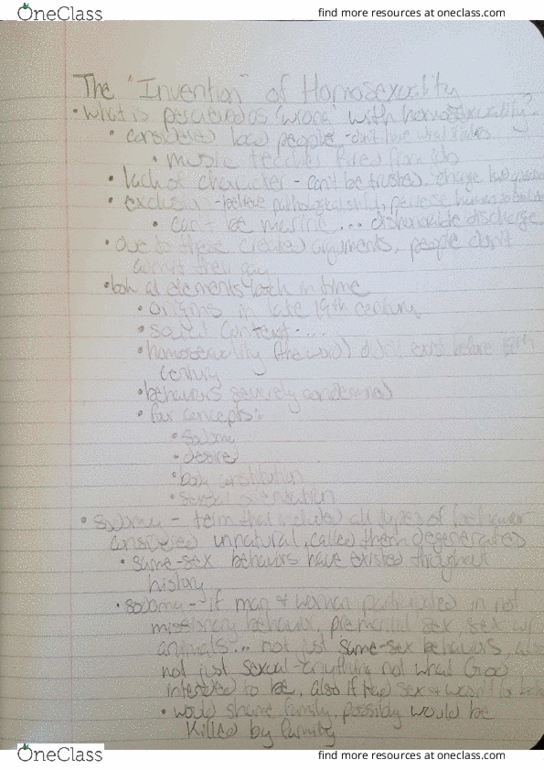 OneClass
find more resources at oneclass.com
The "Invention" of Homosexuality
• what is perceived as wrong with homosexuality?
• considered bad people - don't have what
• music teacher fired from job
• lack of character - can't be trusted, change
• exclusion - believe pathologically,
• can't be marine ... dishonorable discharge
• due to these created arguments, people don't
admit they gay
• elements with in time
• origins in late 19th century
• social context....
• homosexuality (the word) didn't exist before 19th
century
• behaviors severely condemned
• four concepts:
• sodomy
• desire
• body constitution
• sexual orientation
• sodomy - term that included all types of behavior
considered unnatural, called them degenerates
• same-sex behaviors have existed throughout
history
• sodomy - if man & woman participated in not
missionary behaviors, premarital sex, sex w/
animals... not just same-sex behaviors, also
not just sexual - anything not what God
intended to be, also if had sex & wasn't to
• would shame family, possibly would be
killed by family
OneClass
find more resources at oneclass.com